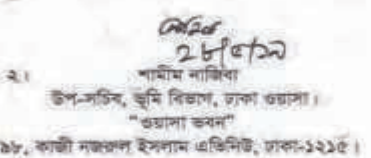 ২৮/৫/১৯
২। শামীম নাজিবা
উপ-সচিব, ভূমি বিভাগ, ঢাকা ওয়াসা।
“ওয়াসা ভবন”
৯৮, কাজী নজরুল ইসলাম এভিনিউ, ঢাকা-১২১৫।